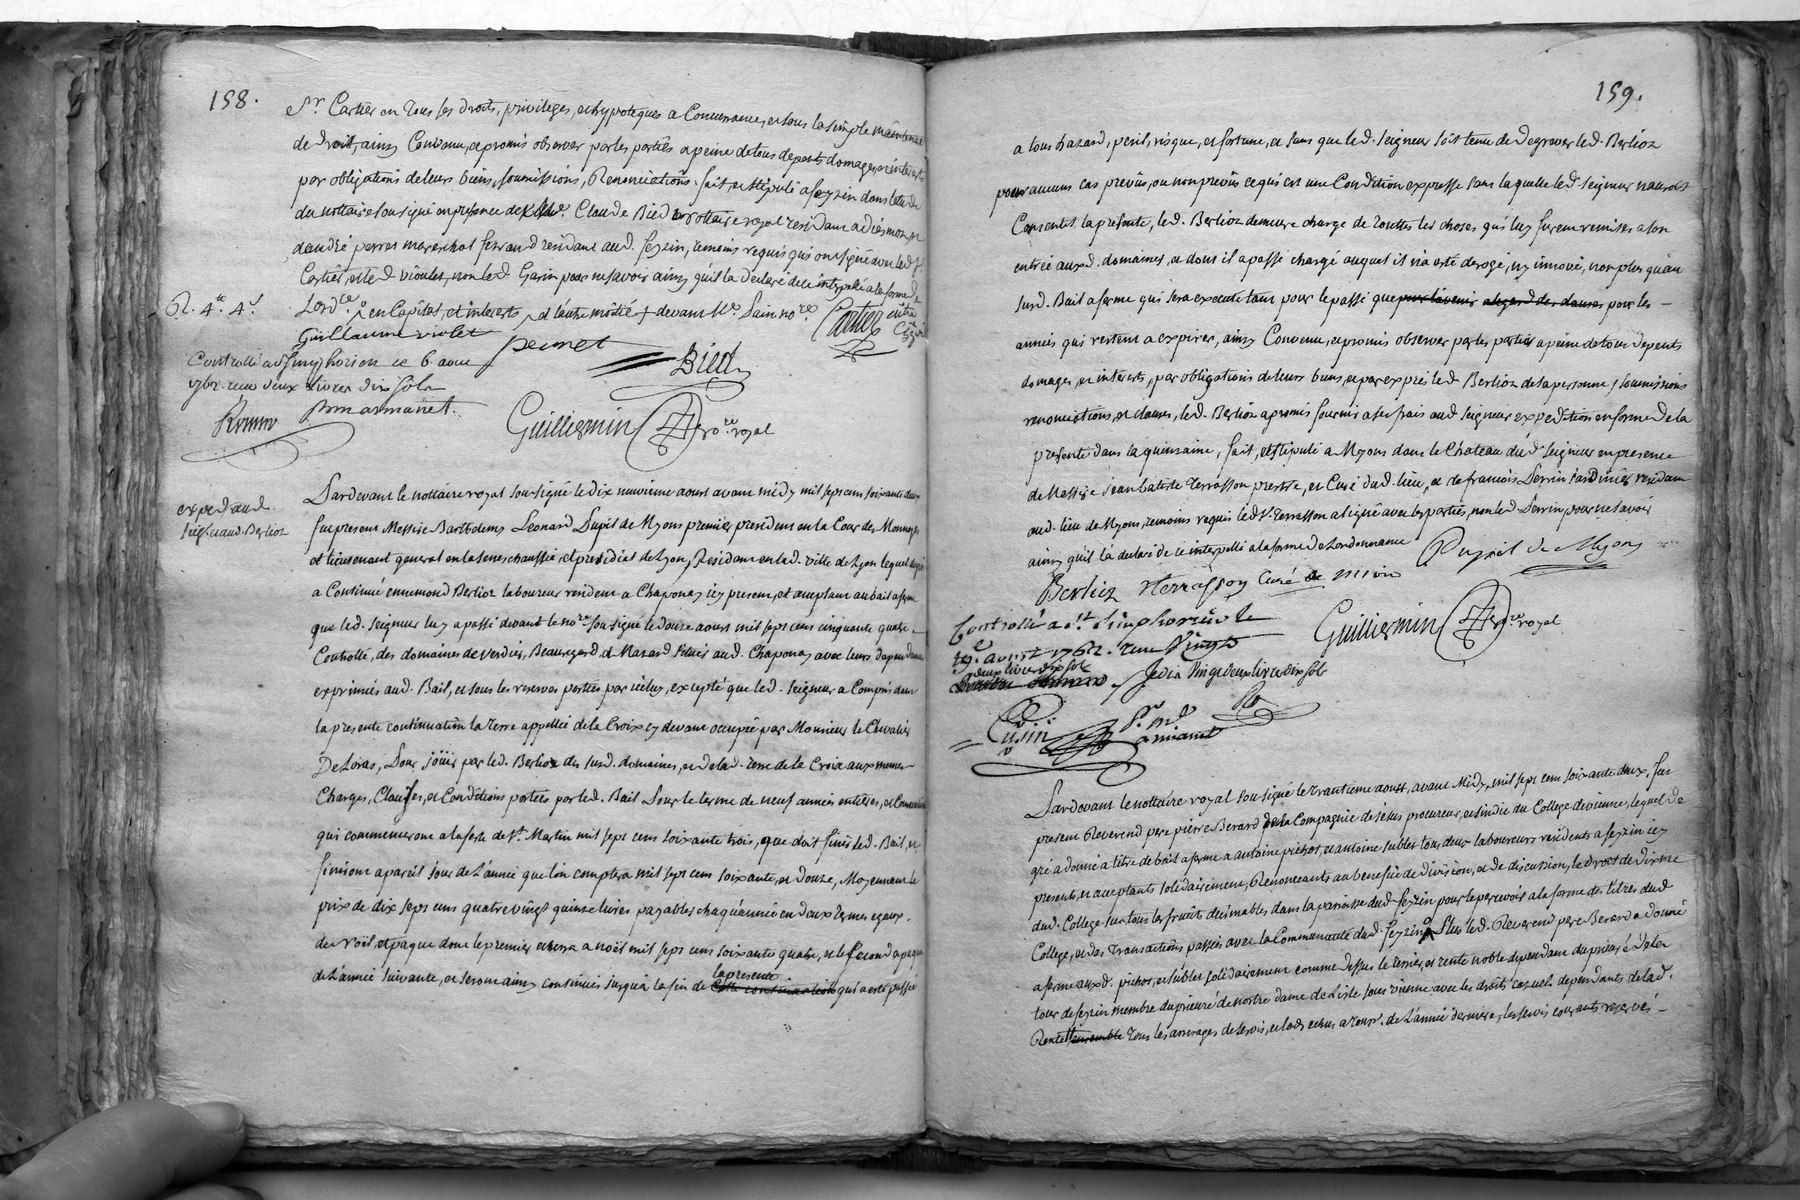 158.
Sr. Cartier en tous ses droits, privileges, et hypoteques a Concurrance, et sous la simple maintenue
de droit, ainsy Convenu, et promis observer par les parties a peine de tous depents domages, et interets
par obligations de leurs biens, soumissions, Renonciations, fait, et stipulé a feyzin dans letude
du nottaire sousigné en presence de Claude Bied nottaire royal residant
andré perret mareschal ferrand residant aud. feyzin, temoins requis qui ont signé avec led. Sr.
Cartier, et led violet, non led Garin pour ne savoir ainsy qu'il la declaré de ce interpellé a la forme de
Lordce en Capital, et interets et l'autre moitié devant Me. Sain nore
R. 4tt 4s
Guillaume violet
perret
Bied
Cartier
Controllé a St simphorien ce 6 aout
1762. reçu deux livres dix sols
Guilliermin nore. royal
exped. aud.
seigr. et aud. Berlioz
Pardevant le nottaire royal sousigné le dix neuvieme aoust avant midy mil sept cent soixante deux
fut present Messire Barthelemy Leonard Pupil de Myons premier president en la Cour des Monnoyes
et lieutenant general en la seneschaussée, et presidial de Lyon, Residant en lad. ville de Lyon lequel de gré
a Continué ennemond Berlioz laboureur resident a Chaponay icy present, et acceptant au bail a ferme
que led. seigneur luy a passé devant le nore. sousigné le douze aoust mil sept cens cinquante quatre
Controllé, des domaines de verdier, Beauregard, et Mazard situés aud. Chaponay avec leurs dependances
exprimées aud. Bail, et sous les reserves portées par icelluy, excepté que led. seigneur a Compris dans
la presente continuation la terre appellée de la Croix cy devant occupée par Monsieur le Chevalier
De Loras, Pour jöuir par led. Berlioz des susd. domaines, et de lad. terre de la Croix aux memes
Charges, Clauses, et Conditions portées par led. Bail Pour le terme de neuf années entieres, et Consecutives
qui commenceront a la feste de St. Martin mil sept cent soixante trois, que doit finir led. Bail, et
finiront a pareil jour de L'année que l'on comptera mil sept cent soixante, et douze, Moyennant le
prix de dix sept cens quatre vingt quinze livres payables chaque année en deux termes egaux
de noël, et paque dont le premier echerra a noël mil sept cens soixante quatre, et le second a paque
de L'année suivante, et seront ainsy continués jusqu'a la fin de la presente qui a eté passée
159.
a tous hazard, peril, risque, et fortune, et sans que led. seigneur soit tenu de degrever led. Berlioz
pour aucuns cas prevûs, ou non prevûs ce qui est une Condition expresse sans laquelle led. seigneur n'auroit
Consenti la presente, led. Berlioz demeure chargé de touttes les choses qui luy furent remises a son
entrée auxd. domaines, et dont il a passé chargé auquel il n'a eté derogé, ny innové, non plus qu'au
susd. Bail a ferme qui sera executé tant pour le passé que pour l'avenir a legard des clauses pour les
années qui restent a expirer, ainsy Convenu, et promis observer par les parties a peine de tous depents
domages, et interets, par obligations de leurs biens, et par exprés led. Berlioz de sa personne, soumissions
renonciations, et clauses, led. Berlioz a promis fournir a ses frais aud. seigneur expedition en forme de la
presente dans la quinzaine, fait, et stipulé a Myons dans le Chateau dud. seigneur en presence
de Messire jean batiste Terrasson prestre, et Curé dud. lieu, et de françois Perrin jardinier residant
aud. lieu de Myons, temoins requis led. Sr. Terrasson a signé avec les parties, non led. Perrin, pour ne savoir
ainsy qu'il la declaré de ce interpellé a la forme de Lordonnance
Pupil de Myons
Berlioz
Terrasson Curé de mion
Controllé a St. Simphorien le
19e. aoust 1762. reçu Vingt
deux livres dix sols
Je dis Vingt deux livres dix sols
Guilliermin nore. royal
Pardevant le nottaire royal sousigné le trantieme aoust, avant Midy, mil sept cent soixante deux, fut
present Reverend pere pierre Berard de la Compagnie de jésus procureur, et sindic du College de vienne, lequel de
gré a donné a titre de bail a ferme a antoine pichot, et antoine sublet tous deux laboureurs residents a feyzin icy
presents, et acceptants solidairement, Renonceants au benefice de division, et de discussion, le droit de dixme
dud. College sur tous les fruits decimables dans la paroisse dud. feyzin pour le percevoir a la forme des titres dud.
College, et des Transactions passées avec la Communauté dud. feyzin, Plus led. Reverend pere Berard a donné
a ferme auxd. pichot, et sublet solidairement comme dessus le terrier, et rente noble dependant du prieuré de la
tour de feyzin membre du prieuré de nostre dame de L'isle sous vienne avec les droits casuels dependants de lad.
Rente ensemble tous les arrerages de servis, et lods echus a jour. de L'année derniere, les servis courants reservés